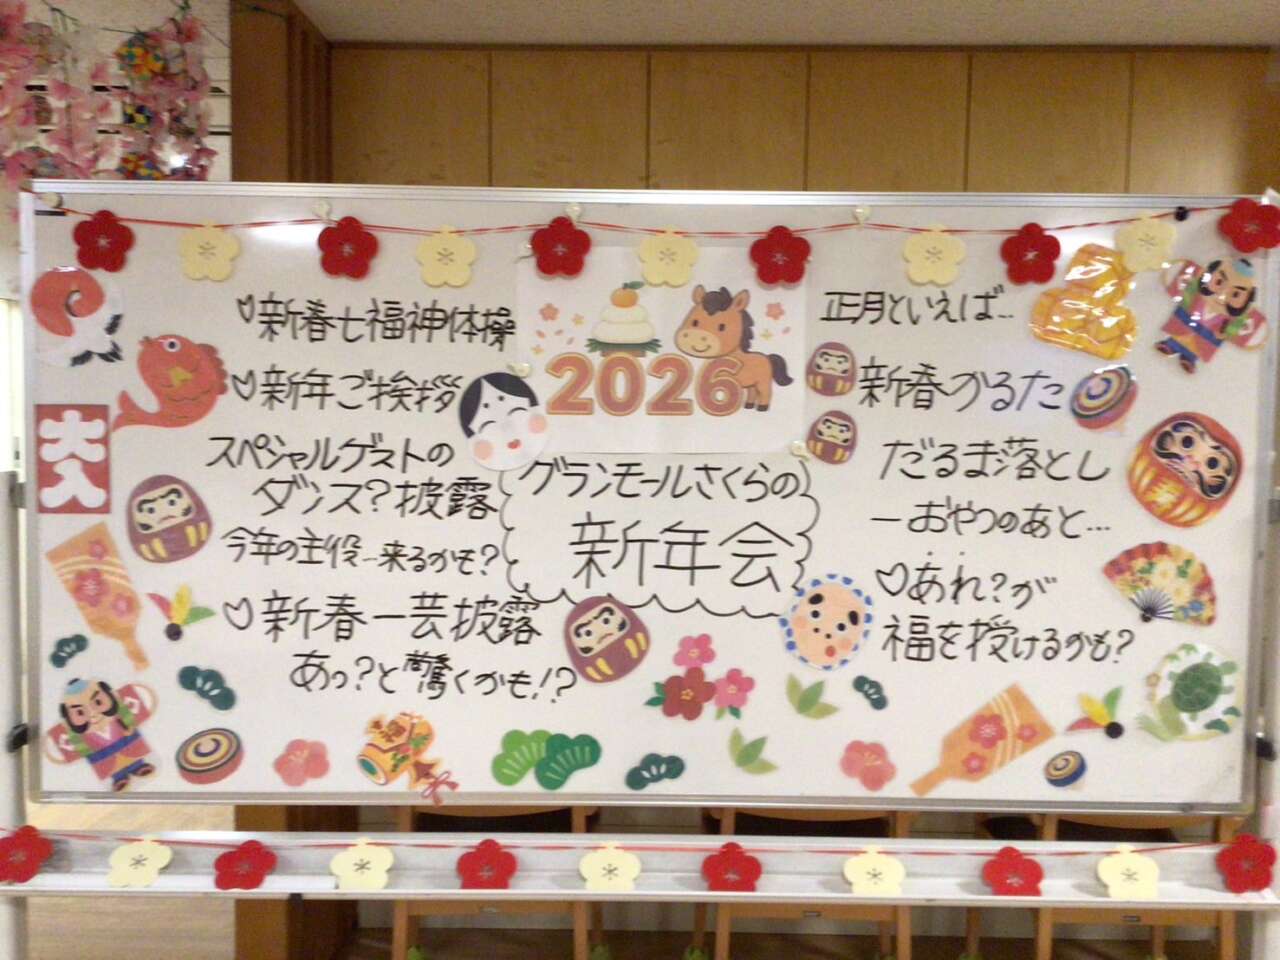 ♡新春七福神体操
♡新年ご挨拶
スペシャルゲストの
ダンス?披露
今年の主役…来るかも?
♡新春一芸披露
あっ?と驚くかも!?
大入
2026
グランモールさくらの
新年会
正月といえば…
新春かるた
だるま落とし
ーおやつのあと…
♡あれ?が
福を授けるかも?